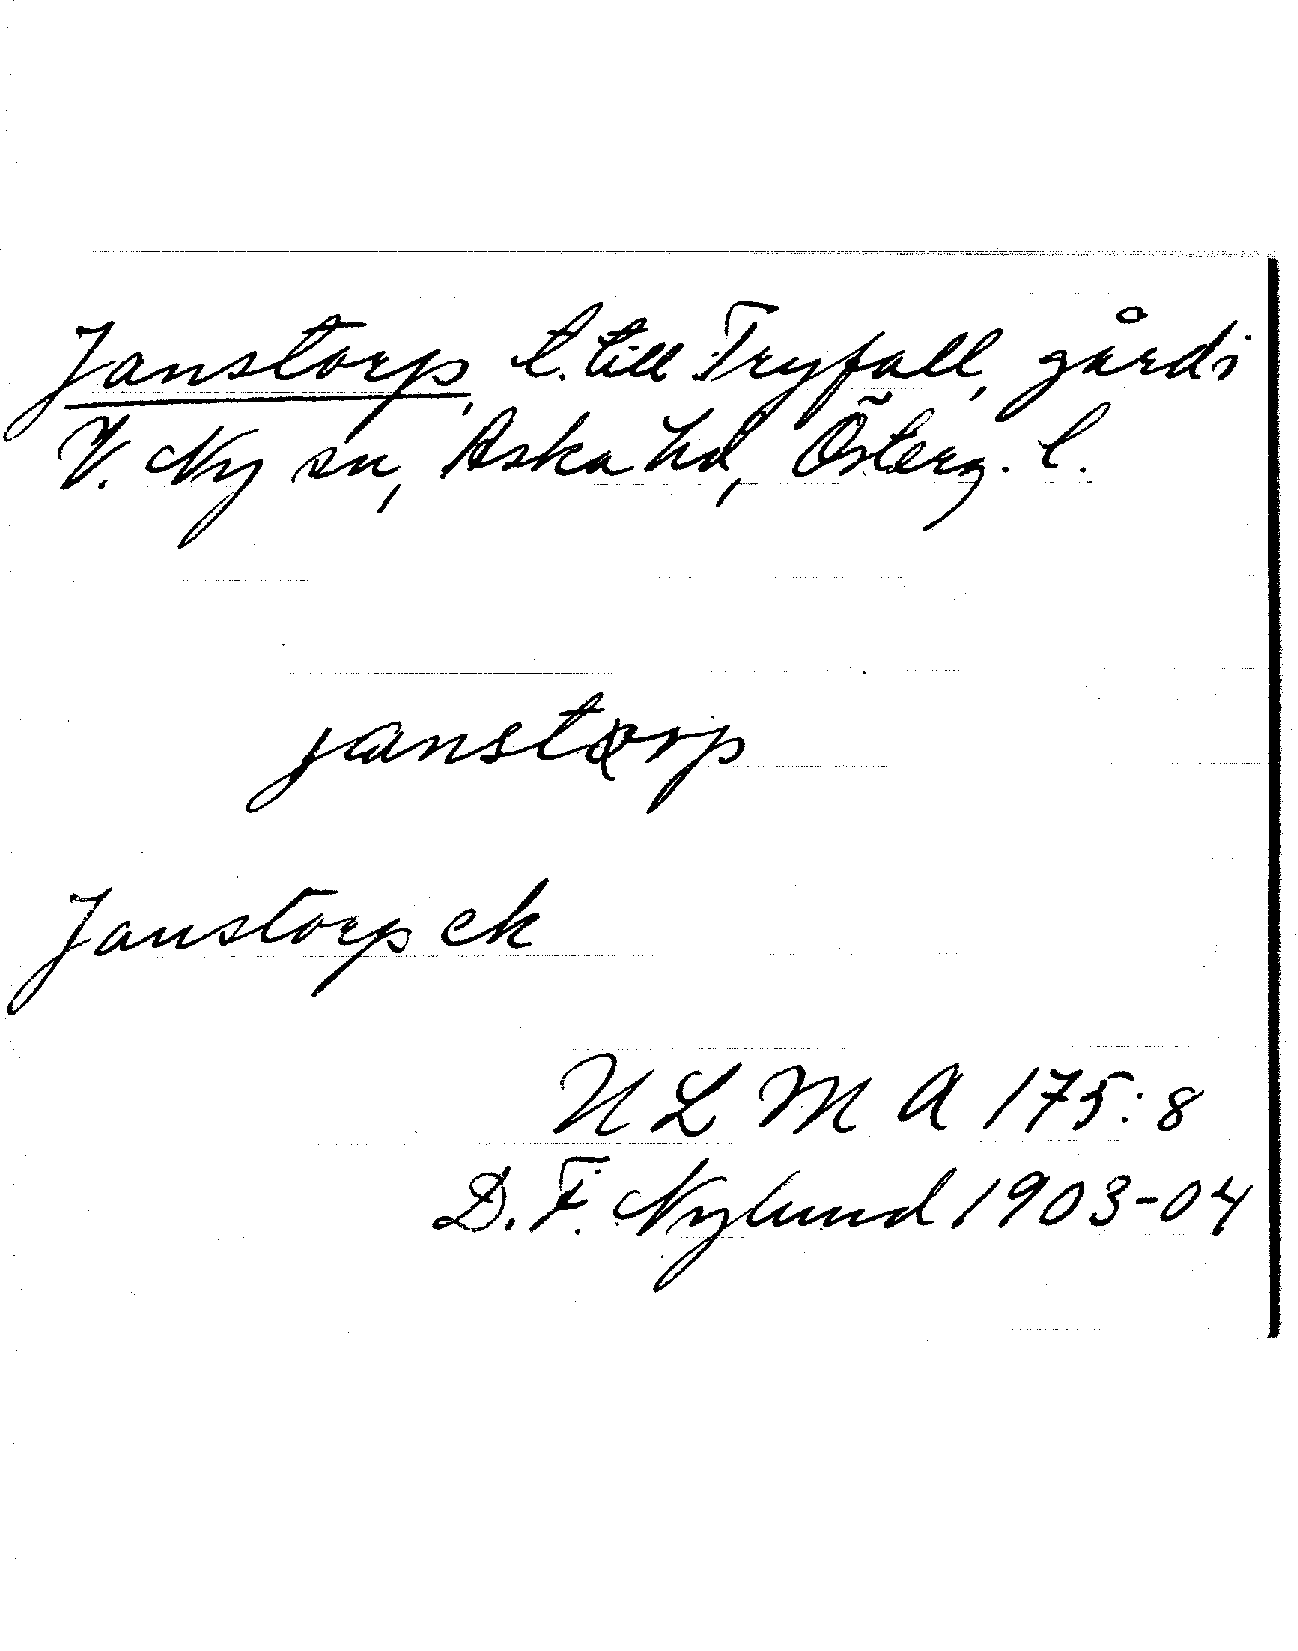 Janstorp, t. till Tryfall, gård i
V. Ny sn, Aska hd, Österg. l.
janstorp
Janstorp ek
ULMA 175:8
D. F. Nylund 1903-04